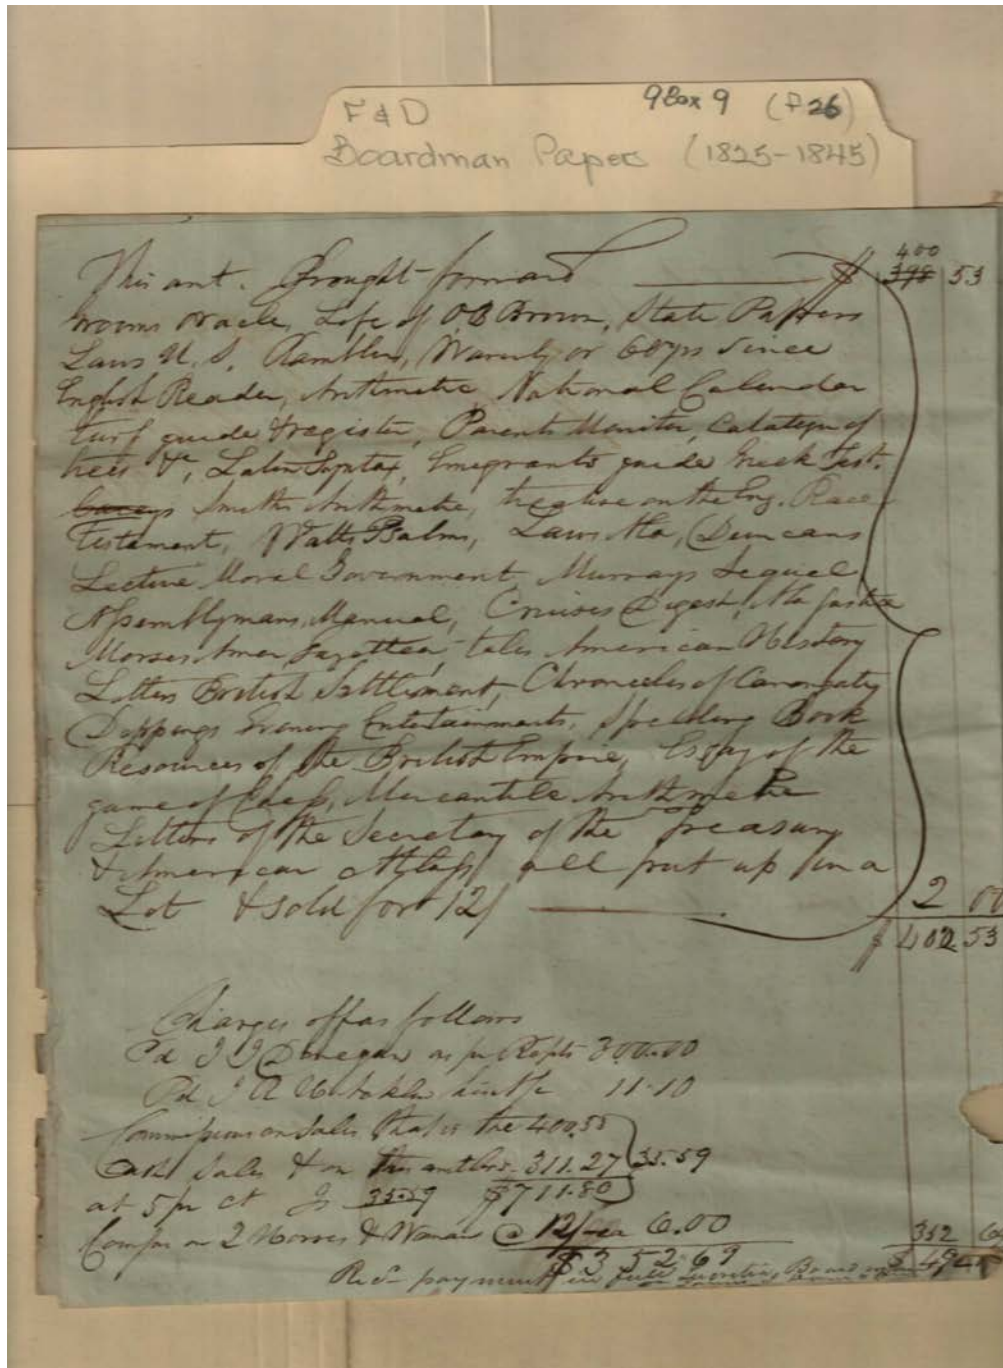 F & D 9 Box 9 (f 26)
Boardman Papers (1825-1845)
This amt. Brought forward $ 400
398 53
oracle, Life of O B Brown, State Papers
Laws U. S. Rambler, Waverly or 60 yrs Since
English Reader, Arithmetic, National Calendar
turf guide & register, Parents Monitor, Catalogue of
trees &c, Latin Syntax, Emigrants guide Greek Test.
Smiths Arithmetic, treatise on the Eng. Race
Testament, Watts Psalms, Laws Ala, Duncans
Lecture Moral Government, Murrays Sequel
Assemblymans, Manual, Cruises Digest, Ala Justice
Morses Amer Gazetteer, tales American History
Letters British Settlement, Chronicles of Canongate
Evening Entertainments, Spelling Book
Resources of the British Empire, Essay of the
game of Chess, Mercantile Arithmetic
Letters of the Secretary of the Treasury
& American Atlass all put up in a
Lot & sold for 12/ 2 00
$ 402.53
Charges off as follows
Pd J J Donegan as pr Rcpts 300.00
Pd J A 11.10
Commissions on Sales that is the 400.53
Cash Sales & on 311.27 35.59
at 5 pr ct Is 35.59 $711.80
on 2 Horses & Woman @ 12/ 6.00 352
$352.69 $ 49
Rec payment in full Boardman